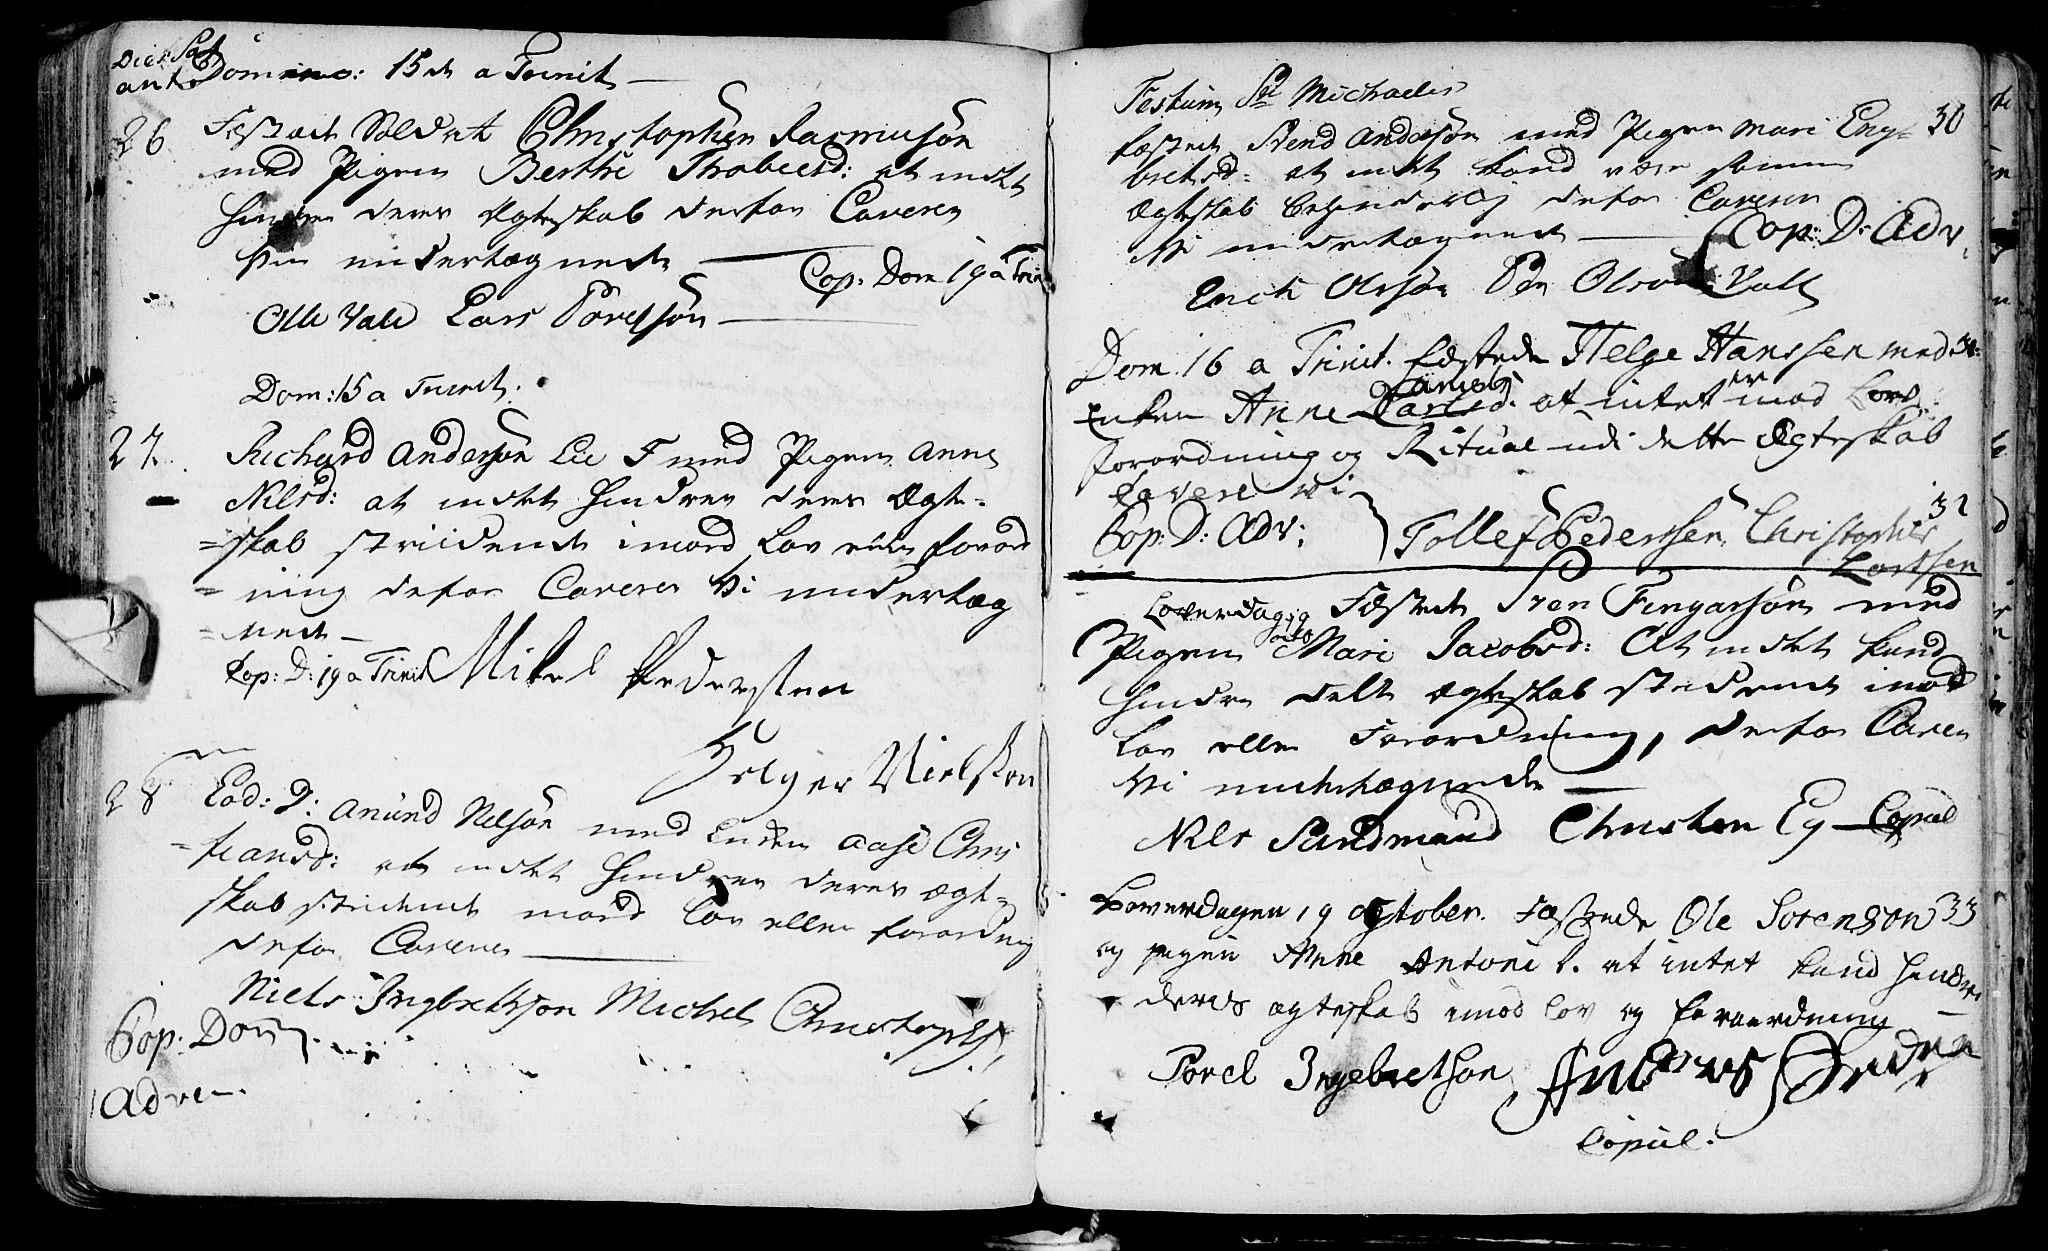 Die Sat
ante Domin: 15de a Trinit
26 Fæstedt Soldat Christopher Rasmusøn
med Pigen Berthe Thrabiesd: at indtet
hindrer deres Ægteskab derfor Caverer
Vi undertegnede
Cop: Dom 19 a Trin
Olle Vale Lars Povelsøn
Dom: 15 a Trinit.
27 Richard Andersøn Lie F med Pigen Anne
Nilsd: at indtet hindrer deres Ægte-
=skab striidende imod Lov eller forord
=ning derfor Caverer Vi undertæg
=nede
Cop: D: 19 a Trinit Mikel Pedersten
Holger Nielsten
28 Eod: D: Anund Nelsøn med Enken Aase Chris
=tiansd: at indtet hindrer deres Ægte-
skab stridende imod Lov eller forordning
derfor Caverer
Niels Ingebretsøn Michel Christophs:
Cop: Dom
1 Adven.
Festum St Michaelis
fæstede Svend Andersøn med Pigen Mari Eng- 30
bretsd: at indtet kand være samme
Ægteskab behinderlig derfor Caverer
Vi undertegnede Cop: D: Adv.
Erick Olesøn Per Olsøn Vall
Dom. 16 a Trinit. fæstede Helge Hanssen med 31
Enken Anne Larsd. at intet er mod Lovs
forordning og Ritual udi dette Ægteskab
Cavere vi
Cop: D: Adv: Tollef Pedersen, Christopher
Lartsen
32
Løverdag 19 octo Fæstede Iven Fingarsøn med
Pigen Mari Jacobsd: At indtet kand
hindre dette Ægteskab stridende imod
Lov eller Forordning, derfor Caverer
Vi undertegnede
Nils Sandmand Christen Ey Copul
Løverdagen 19 october. Fæstede Ole Sorenson 33
og pigen Anne Antoni D. at intet kand hindre
deres ægteskab imod lov og foraardning
Povel Ingebretson Anders
Copul.